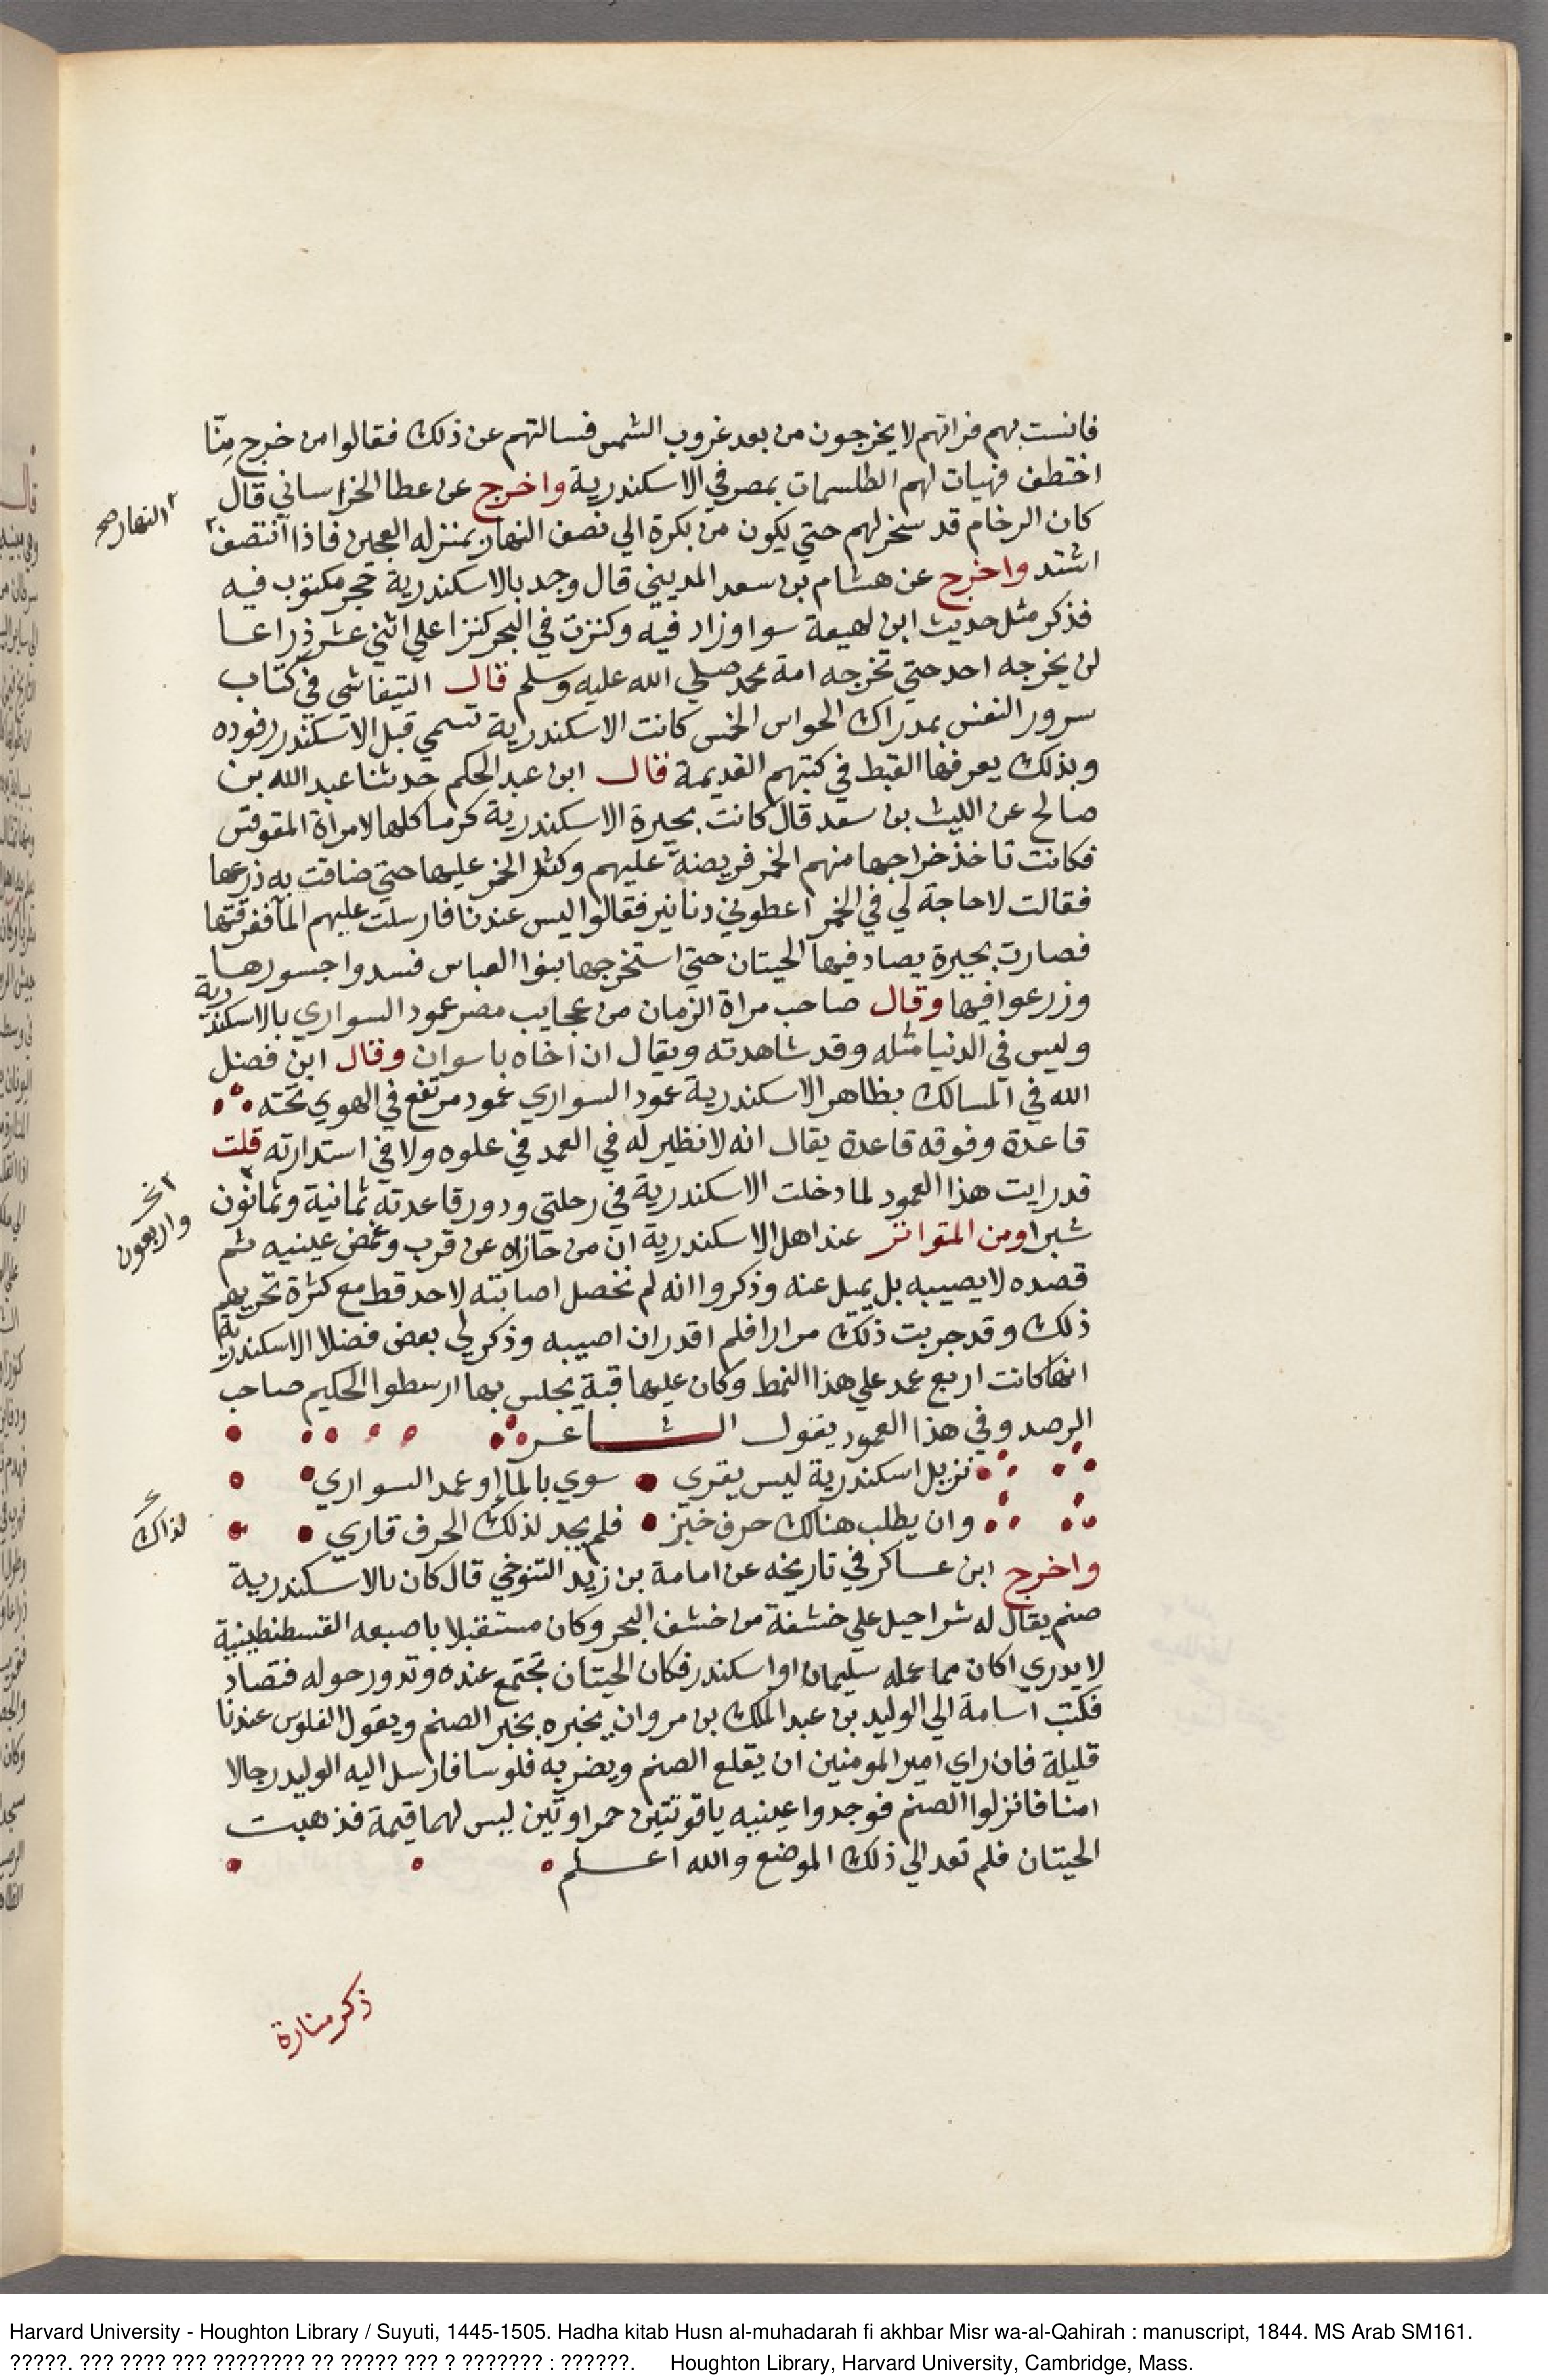 فانست بهم فراتهم لا يخرجون من بعد غروب الشمس فسالتهم عن ذلك فقالوا من خرج مِنّا
اختطف فهيات لهم الطلسمات بمصر في الاسكندرية واخرج عن عطا الخراساني قال
كان الرخام قد سخر لهم حتي يكون من بكرة الي نصف النهار بمنزله العجين فاذا انتصف
النهار صح
اشتد واخرج عن هشام بن سعد المديني قال وجد بالاسكندرية حجر مكتوب فيه
فذكر مثل حديث ابن لهيعة سوا وزاد فيه وكنزت في البحر كنزا علي اثني عشر ذراعا
لن يخرجه احد حتي تخرجه امة محمد صلي الله عليه وسلم قال التيفاشي في كتاب
سرور النفس بمدراك الحواس الخمس كانت الاسكندرية تسمي قبل الاسكندر رفوده
وبذلك يعرفها القبط في كتبهم القديمة قال ابن عبد الحكم حدثنا عبد الله بن
صالح عن الليث بن سعد قال كانت بحيرة الاسكندرية كرما كلها لامراة المقوقس
فكانت تاخذ خراجها منهم الخمر فريضة عليهم وكثر الخمر عليها حتي ضاقت به ذرعها
فقالت لا حاجة لي في الخمر اعطوني دنانير فقالوا ليس عندنا فارسلت عليهم الما فغرقتها
فصارت بحيرة يصاد فيها الحيتان حتي استخرجها بنوا العباس فسدوا جسورها
وزرعوا فيها وقال صاحب مراة الزمان من عجايب مصر عمود السواري بالاسكندرية
وليس في الدنيا مثله وقد شاهدته ويقال ان اخاه باسوان وقال ابن فضل
الله في المسالك بظاهر الاسكندرية عمود السواري عمود مرتفع في الهوي تحته
قاعدة وفوقه قاعدة يقال انه لا نظير له في العمد في علوه ولا في استدارته قلت
قد رايت هذا العمود لما دخلت الاسكندرية في رحلتي ودور قاعدته ثمانية وثمانون
واربعون
شبرا ومن المتواتر عند اهل الاسكندرية ان من حازاه عن قرب وغمض عينيه ثم
قصده لا يصيبه بل يميل عنه وذكروا انه لم تحصل اصابته لاحد قط مع كثرة تحريهم
ذلك وقد جربت ذلك مرارا فلم اقدر ان اصيبه وذكر لي بعض فضلا الاسكندرية
انها كانت اربع عمد علي هذا النمط وكان عليها قبة يجلس بها ارسطوا الحكيم صاحب
الرصد وفي هذا العمود يقول الشاعر
نزيل اسكندرية ليس يقري سوي بالما او عمد السواري
وان يطلب هنالك حرف خبز فلم يجد لذلك الحرف قاري
لذاك
واخرج ابن عساكر في تاريخه عن امامة بن زيد التنوخي قال كان بالاسكندرية
صنم يقال له شراحيل علي خشفة من خشف البحر وكان مستقبلا باصبعه القسطنطينية
لا يدري اكان مما عمله سليمان او اسكندر فكان الحيتان تجتمع عنده وتدور حوله فتصاد
فكتب اسامة الي الوليد بن عبد الملك بن مروان يخبره بخبر الصنم ويقول الفلوس عندنا
قليلة فان راي امير المومنين ان يقلع الصنم ويضربه فلوسا فارسل اليه الوليد رجالا
امنا فانزلوا الصنم فوجدوا عينيه ياقوتتين حمراوتين ليس لهما قيمة فذهبت
الحيتان فلم تعد الي ذلك الموضع والله اعلم
ذكر منارة
Harvard University - Houghton Library / Suyuti, 1445-1505. Hadha kitab Husn al-muhadarah fi akhbar Misr wa-al-Qahirah : manuscript, 1844. MS Arab SM161.
?????. ??? ???? ??? ???????? ?? ????? ??? ? ??????? : ??????. Houghton Library, Harvard University, Cambridge, Mass.